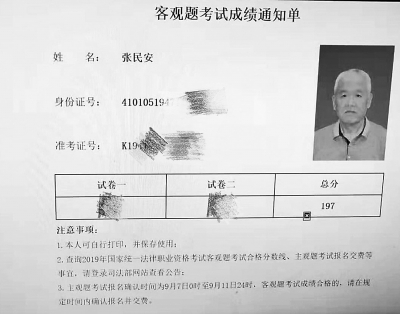 客观题考试成绩通知单
姓 名: 张民安
身份证号: 4101051947
准考证号: K19
试卷一 试卷二 总分
197
注意事项:
1.本人可自行打印,并保存使用;
2.查询2019年国家统一法律职业资格考试客观题考试合格分数线、主观题考试报名交费等
事宜,请登录司法部网站查看公告;
3.主观题考试报名确认时间为9月7日0时至9月11日24时,客观题考试成绩合格的,请在规
定时间内确认报名并交费。